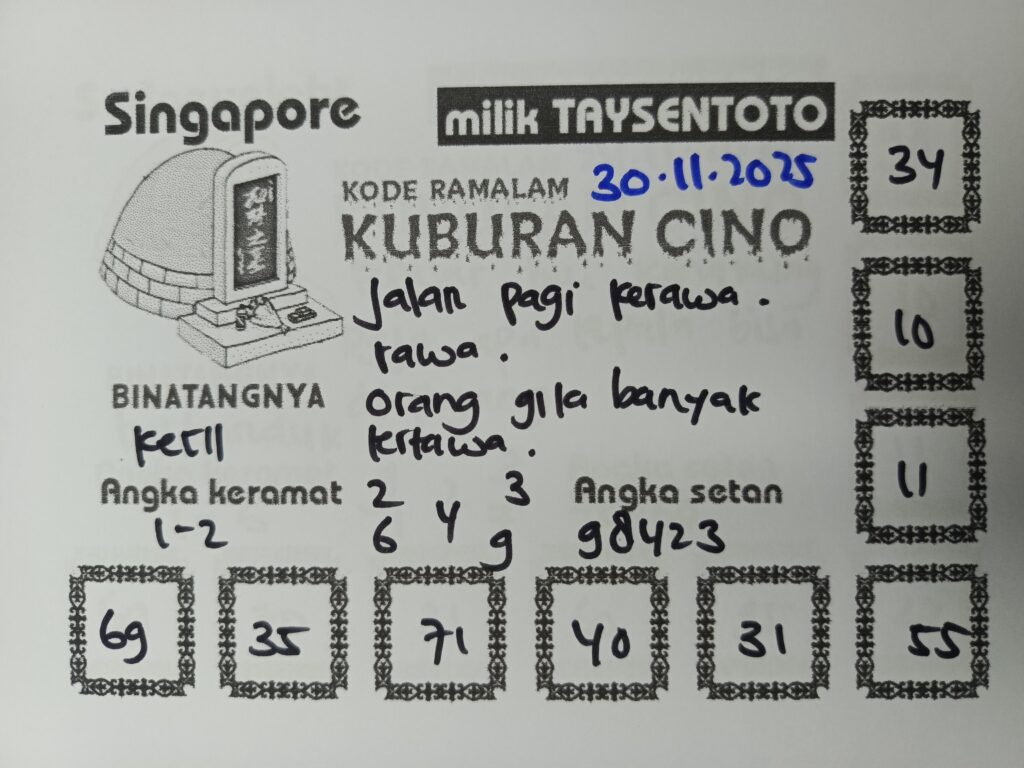 Singapore
milik TAYSENTOTO
KODE RAMALAM 30.11.2025
KUBURAN CINO
Jalan pagi kerawa.
rawa.
orang gila banyak
tertawa.
BINATANGNYA
Angka keramat
1-2
2 3
4
6 9
Angka setan
98423
34
10
11
69 35 71 40 31 55